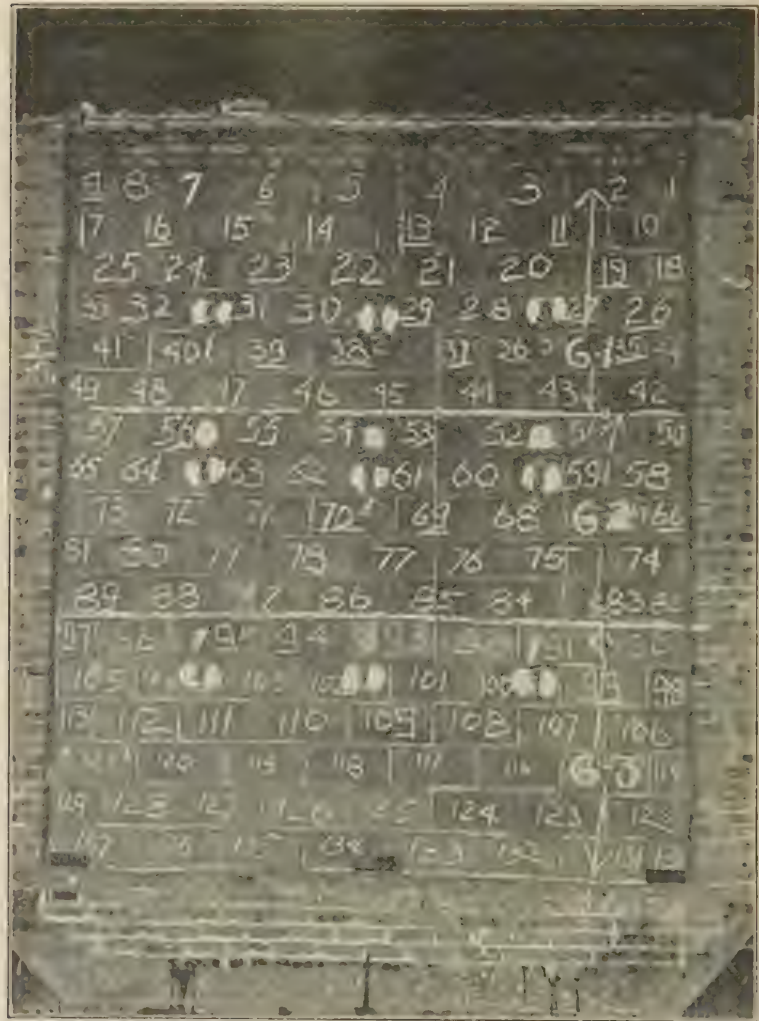 9 8 7 6 5 4 3 2 1
17 16 15 14 13 12 11 10
25 24 23 22 21 20 19 18
32 31 30 29 28 27 26
41 40 39 38 37 36 6-1 35
49 48 47 46 45 44 43 42
57 56 55 54 53 52 51 50
65 64 63 62 61 60 59 58
73 72 71 70 69 68 6-2 66
81 80 79 78 77 76 75 74
89 88 87 86 85 84 83 82
97 96 95 94 93 91
105 103 102 101 100 99 98
113 112 111 110 109 108 107 106
120 119 118 117 116 6-3
129 128 127 126 125 124 123 122
137 134 133 132 131